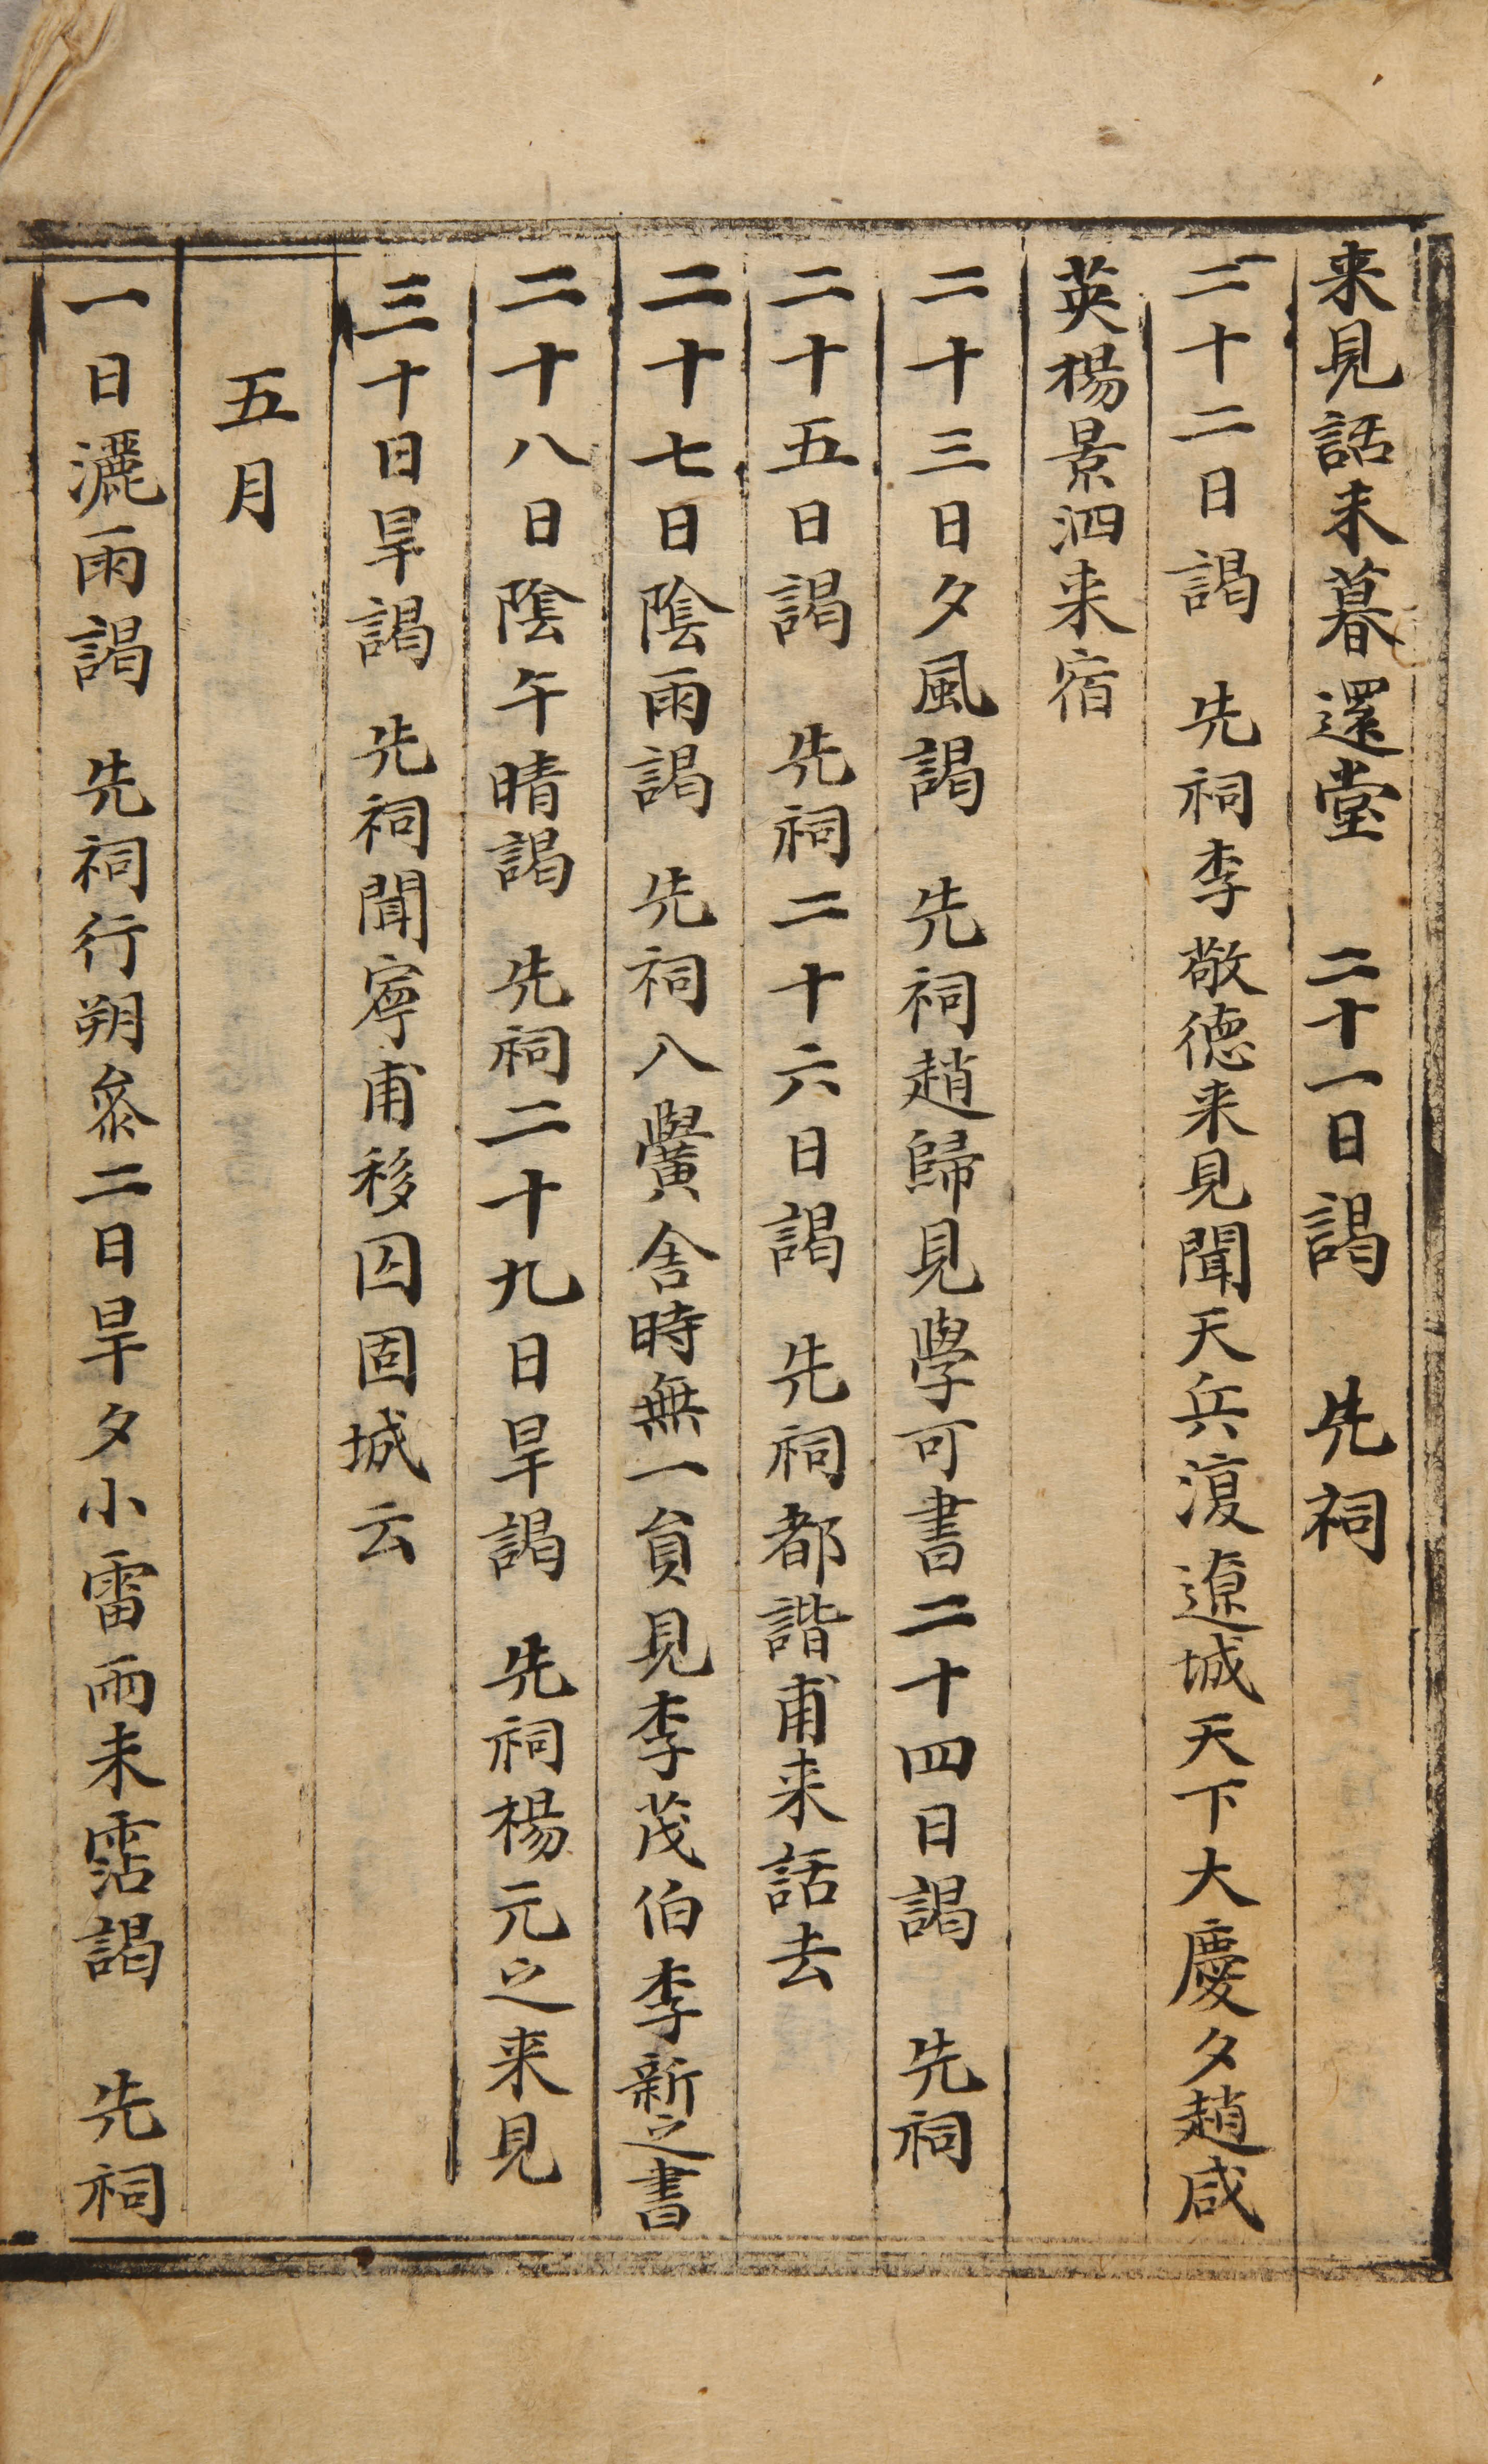 来見話未暮還堂 二十一日謁 先祠
二十二日謁 先祠李敬德来見聞天兵復遼城天下大慶夕趙咸
英楊景泗来宿
二十三日夕風謁 先祠趙歸見學可書二十四日謁 先祠
二十五日謁 先祠二十六日謁 先祠都諧甫来話去
二十七日陰雨謁 先祠入黌舍時無一員見李茂伯李新之書
二十八日陰午晴謁 先祠二十九日旱謁 先祠楊元之来見
三十日旱謁 先祠聞寧甫移囚固城云
五月
一日灑雨謁 先祠行朔叅二日旱夕小雷雨未霑謁 先祠